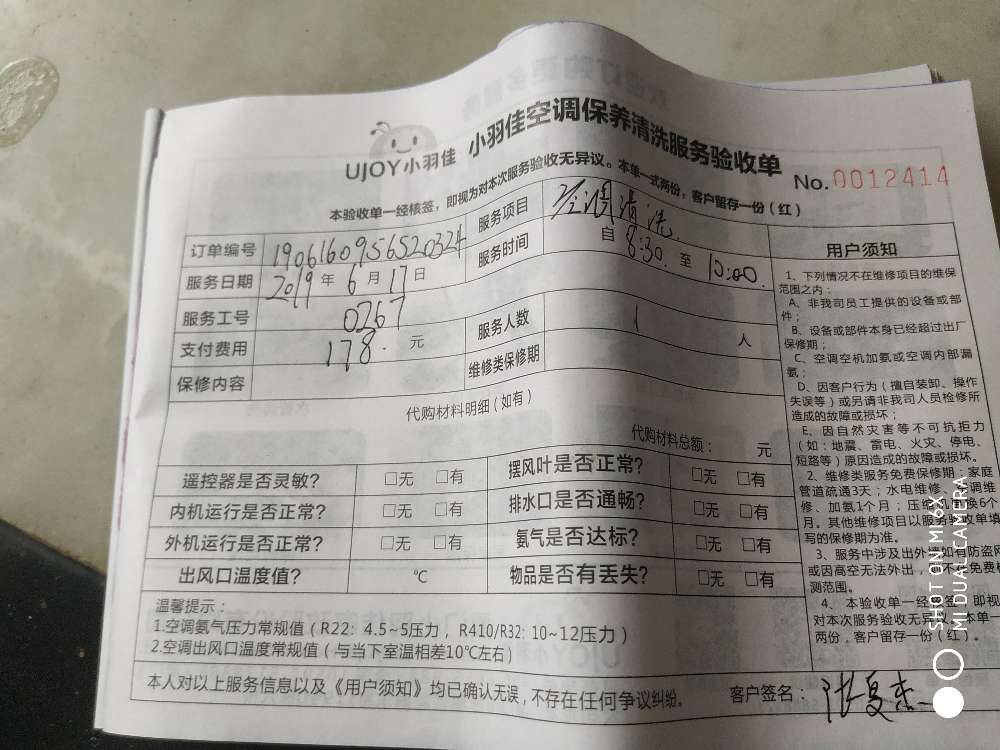 UJOY小羽佳 小羽佳空调保养清洗服务验收单
No.0012414
本验收单一经核签，即视为对本次服务验收无异议。本单一式两份，客户留存一份（红）
订单编号 1906160956520324 服务项目 空调清洗
服务日期 2019年6月17日 服务时间 自8:30至10:00
服务工号 0267 服务人数 1人
支付费用 178.元 维修类保修期
保修内容
代购材料明细（如有）
代购材料总额： 元
遥控器是否灵敏? □无 □有 摆风叶是否正常? □无 □有
内机运行是否正常? □无 □有 排水口是否通畅? □无 □有
外机运行是否正常? □无 □有 氨气是否达标? □无 □有
出风口温度值? ℃ 物品是否有丢失? □无 □有
温馨提示：
1.空调氨气压力常规值（R22: 4.5~5压力，R410/R32: 10~12压力）
2.空调出风口温度常规值（与当下室温相差10℃左右）
本人对以上服务信息以及《用户须知》均已确认无误，不存在任何争议纠纷。 客户签名：
用户须知
1、下列情况不在维修项目的维保
范围之内：
A、非我司员工提供的设备或部
件；
B、设备或部件本身已经超过出厂
保修期；
C、空调空机加氨或空调内部漏
氨；
D、因客户行为（擅自装卸、操作
失误等）或另请非我司人员检修所
造成的故障或损坏；
E、因自然灾害等不可抗拒力
（如：地震、雷电、火灾、停电、
短路等）原因造成的故障或损坏。
2、维修类服务免费保修期：家庭
管道疏通3天；水电维修、调维
修、加氨1个月；压缩机换6个
月。其他维修项目以服务验收单填
写的保修期为准。
3、服务中涉及出外墙如有防盗网
或因高空无法外出，不免费
测范围。
4、本验收单一经核签，即视
对本次服务验收无异议。本单一
两份，客户留存一份（红）。
SHOT ON MI 6X
MI DUAL CAMERA